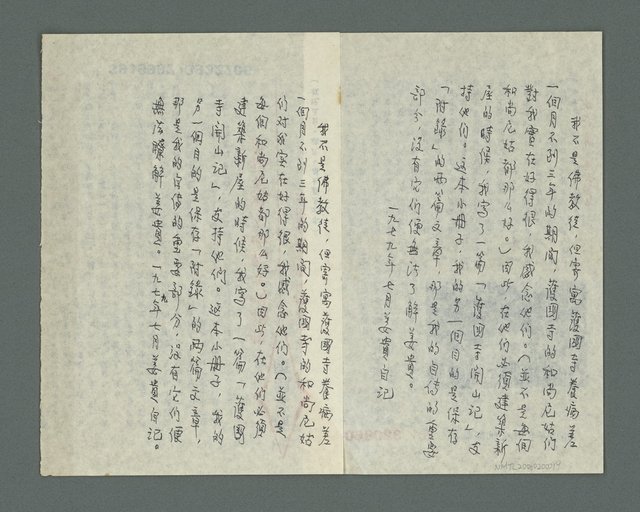 我不是佛教徒，但寄寓護國寺養病差
一個月不到三年的期間，護國寺的和尚尼姑們
對我實在好得很，我感念他們。（並不是每個
和尚尼姑都那么好。）因此，在他們必須建築新
屋的時候，我寫了一篇「護國寺開山記」，支
持他們。這本小冊子，我的另一個目的是保存
「附錄」的两篇文章，那是我的自傳的重要
部分，沒有它們便無法了解姜貴。
一九七九年七月姜貴自記
我不是佛教徒，但寄寓護國寺養病差
一個月不到三年的期間，護國寺的和尚尼姑
們对我实在好得很，我感念他們。（並不是
每個和尚尼姑都那么好。）因此，在他們必須
建築新屋的時候，我寫了一篇「護國
寺開山記」，支持他們。這本小冊子，我的
另一個目的是保存「附錄」的两篇文章，
那是我的自傳的重要部分，沒有它們便
無法瞭解姜貴。一九七九年七月姜貴自記。
NMTL20050200019